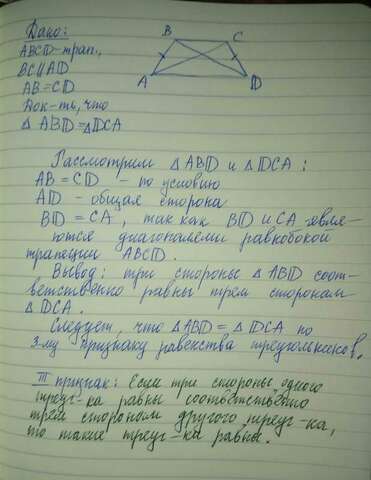 Дано:
ABCD-трап.,
BC∥AD
AB=CD
Док-ть, что
△ ABD=△DCA
B
C
A
D
Рассмотрим △ABD и △DCA:
AB=CD - по условию
AD - общая сторона
BD=CA, так как BD и CA явля-
ются диагоналями равнобокой
трапеции ABCD.
Вывод: три стороны △ABD соот-
ветственно равны трем сторонам
△DCA.
Следует, что △ABD=△DCA по
3-му признаку равенства треугольников.
III признак: Если три стороны одного
треуг-ка равны соответственно
трем сторонам другого треуг-ка,
то такие треуг-ки равны.